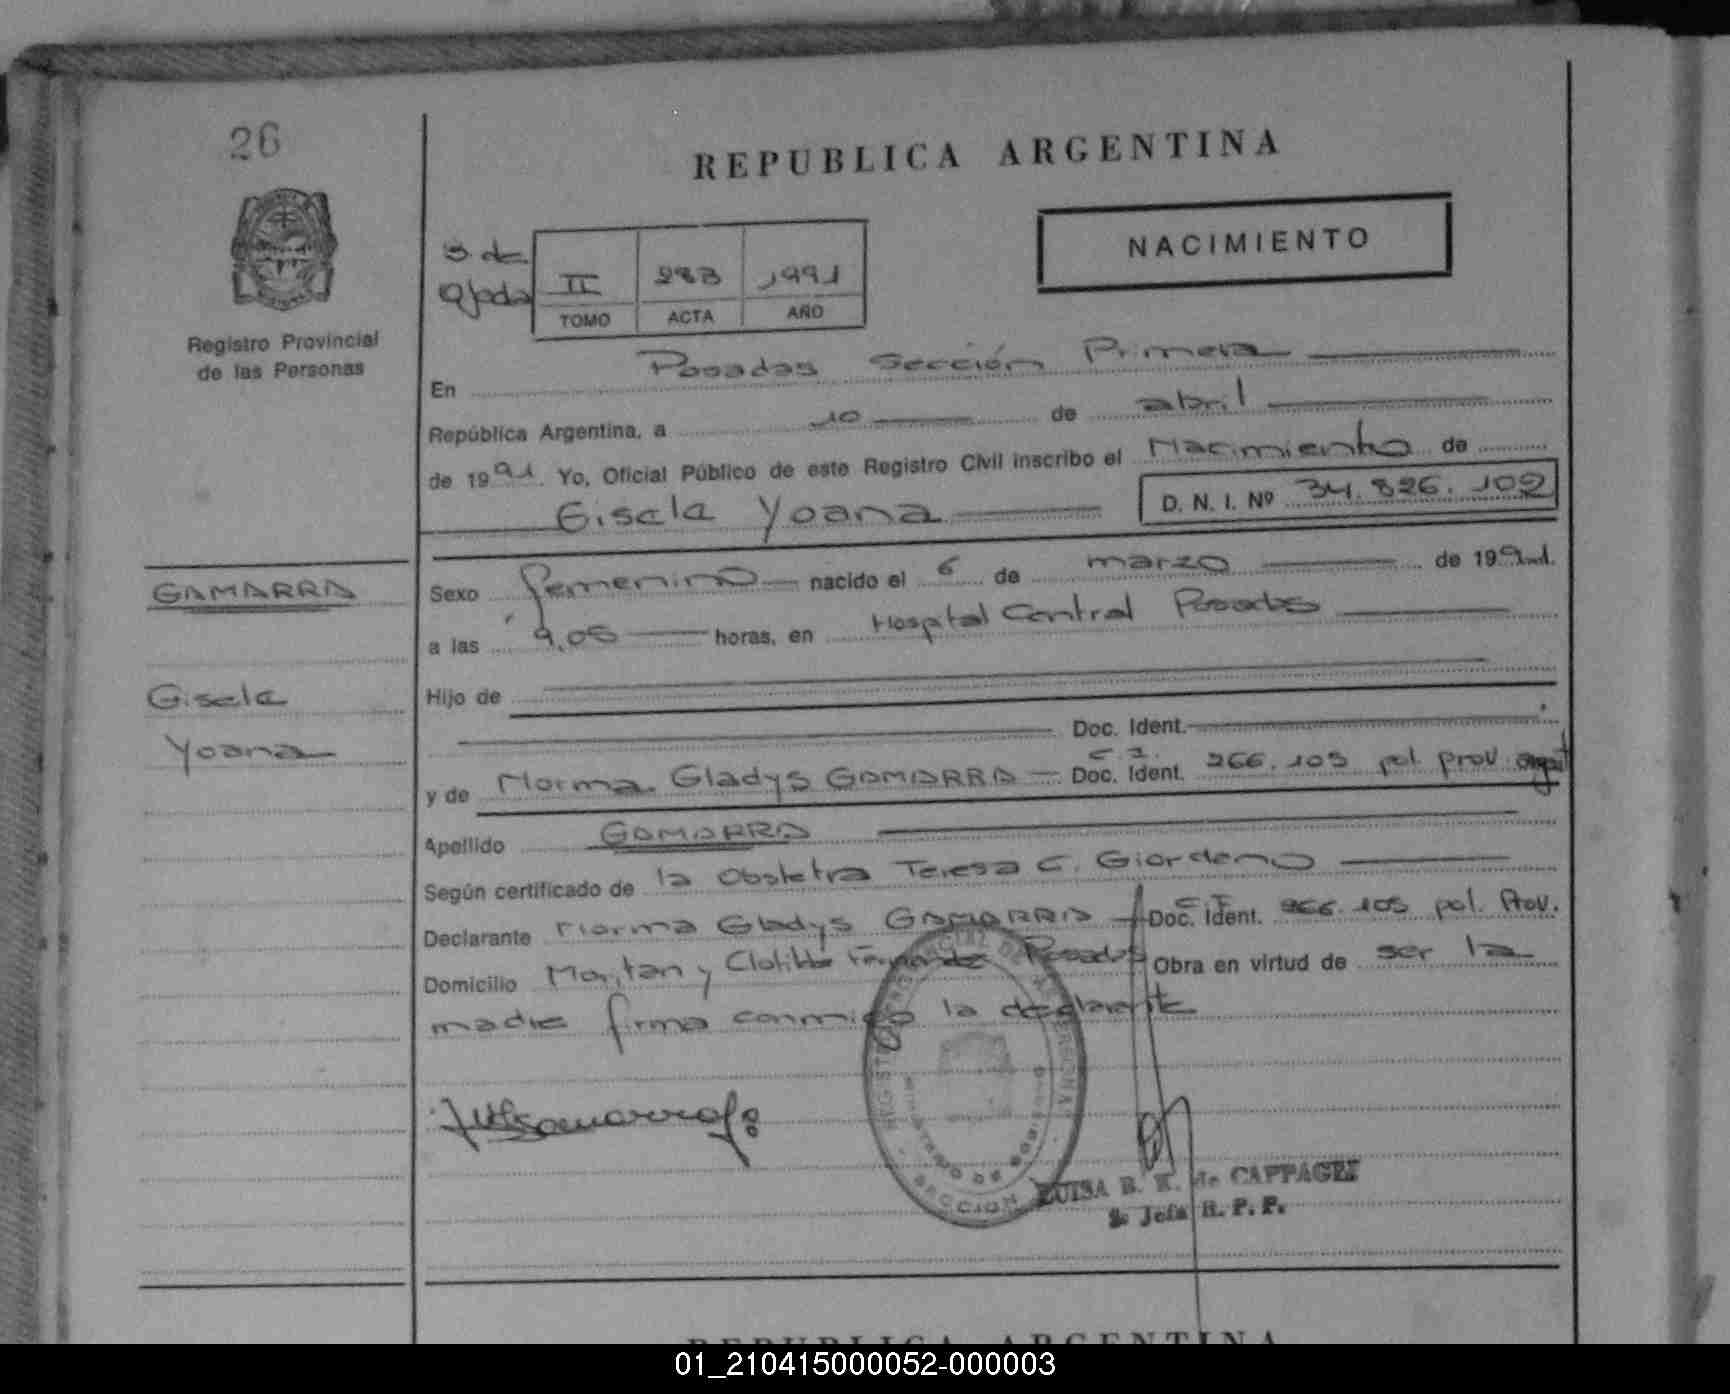 26
REPUBLICA ARGENTINA
NACIMIENTO
3. de
II 283 1991
TOMO ACTA AÑO
Registro Provincial
de las Personas
En Posadas Sección Primera
República Argentina, a 10 de abril
de 1991. Yo, Oficial Público de este Registro Civil inscribo el Nacimiento de
Gisela Yoana D. N. I. Nº 34.826.102
GAMARRA
Gisela
Yoana
Sexo femenino nacido el 6 de marzo de 1991.
a las 9,05 horas, en Hospital Central Posadas
Hijo de
Doc. Ident.
y de Norma Gladys GAMARRA Doc. Ident. C.I. 266.105 pol prov.
Apellido GAMARRA
Según certificado de la Obstetra Teresa C. Giordano
Declarante Norma Gladys GAMARRA Doc. Ident. C.I. 266.105 pol. Prov.
Domicilio y Clotilde Fernandez Posadas Obra en virtud de ser la
madre firma conmigo la declarante
REGISTRO PROVINCIAL DE LAS PERSONAS
MINISTERIO DE GOBIERNO
SECCION
LUISA B. K. de CAPPAGLI
Jefa R. P. P.
REPUBLICA ARGENTINA
01_210415000052-000003